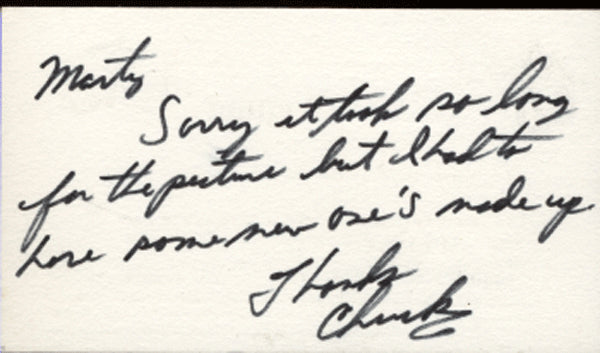 Marty
Sorry it took so long
for the picture but I had to
have some new one's made up
Thanks
Chuck